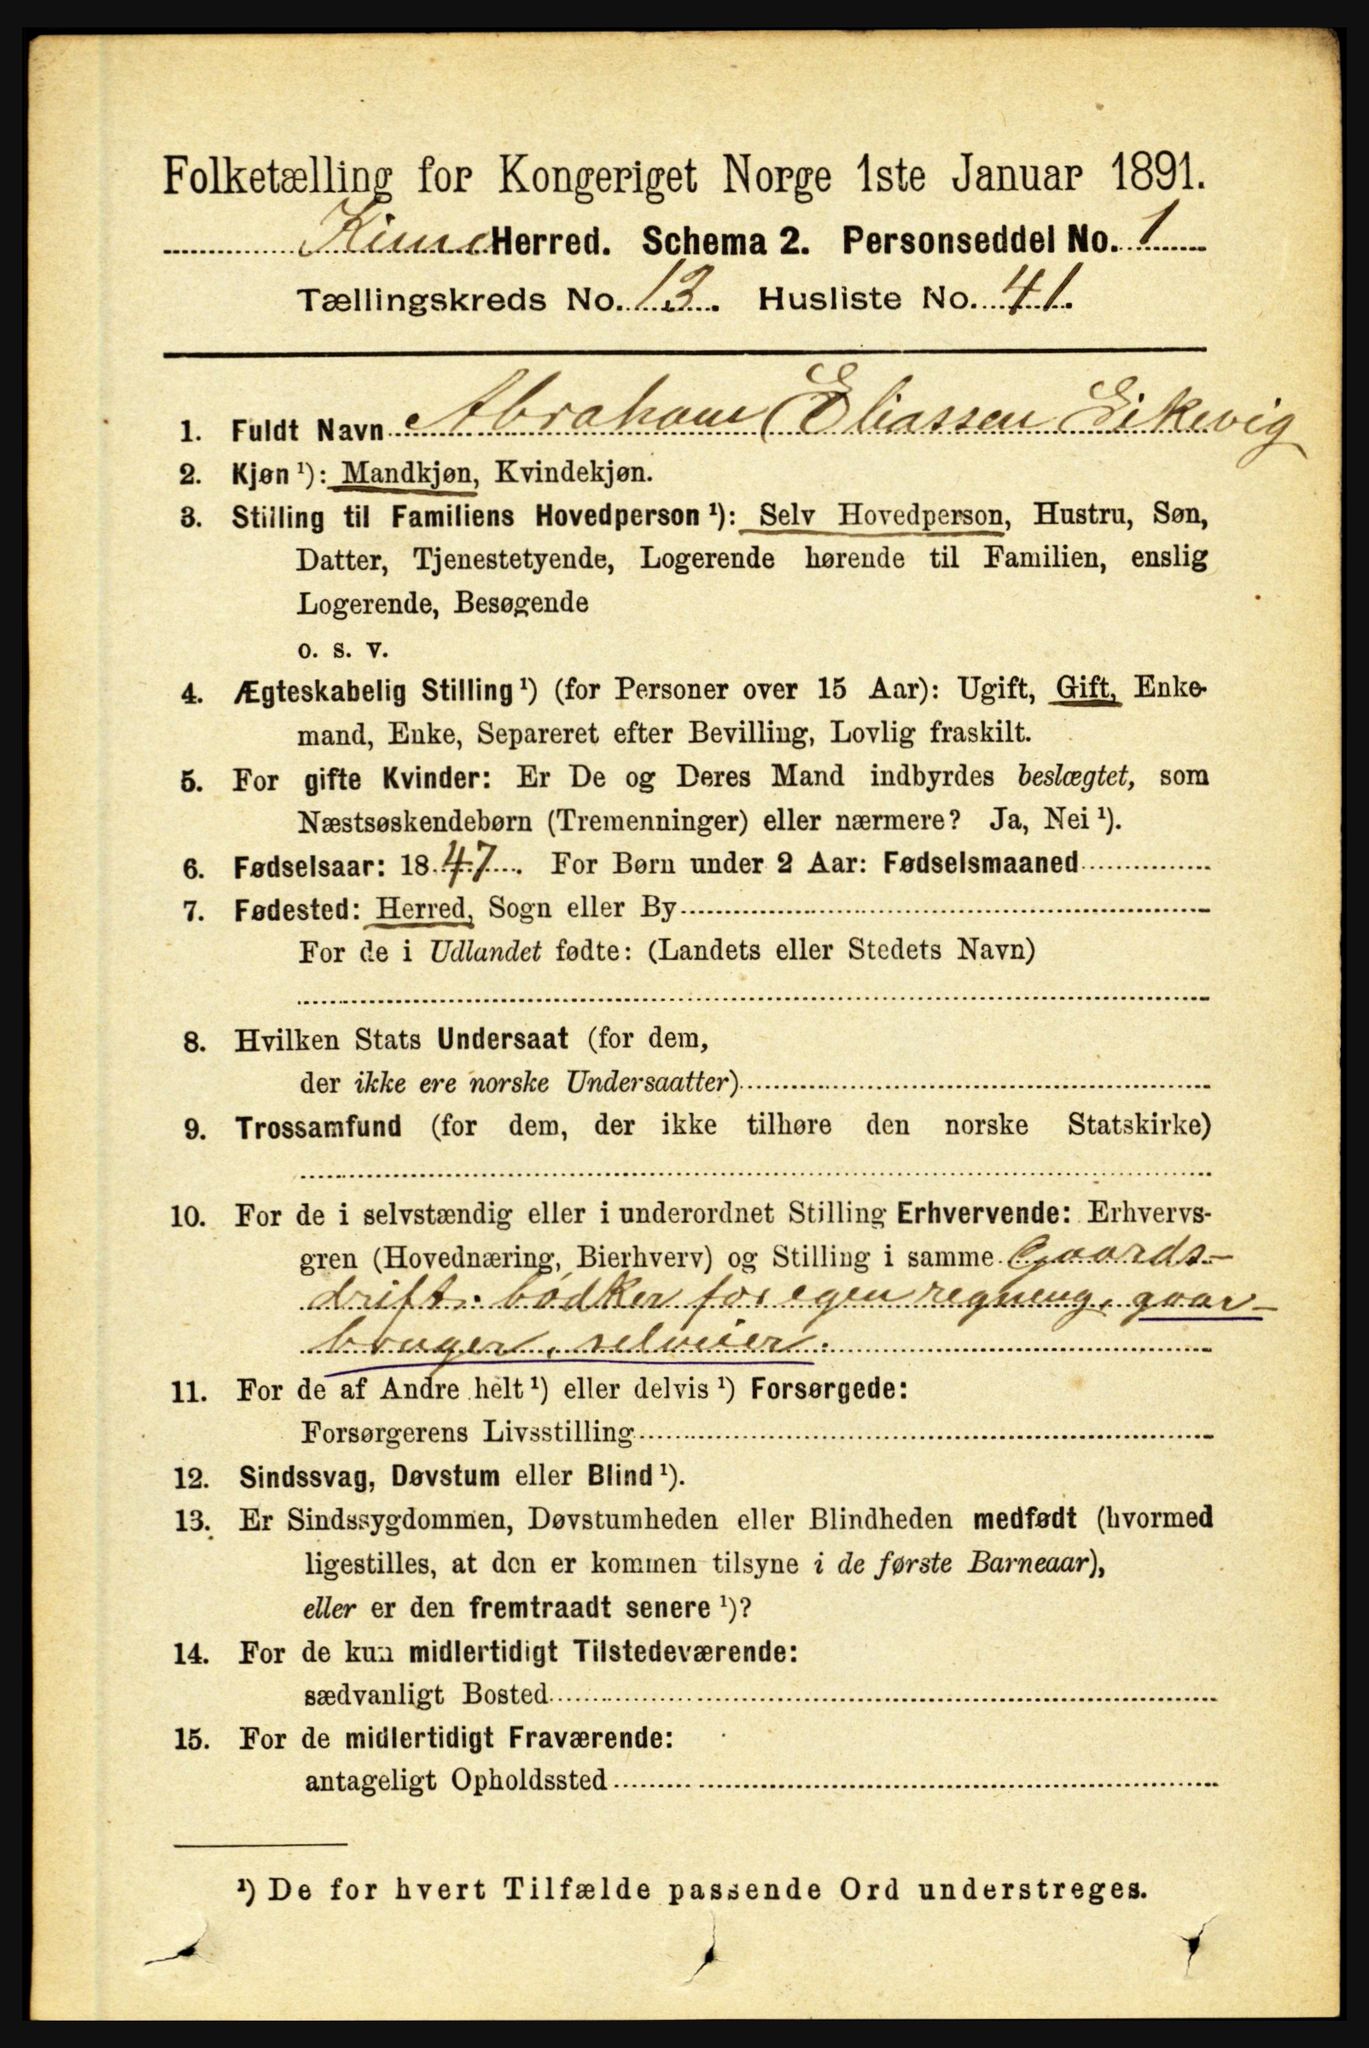 Folketælling for Kongeriget Norge 1ste Januar 1891.
Kinn Herred. Schema 2. Personseddel No. 1
Tællingskreds No. 13. Husliste No. 41.
1. Fuldt Navn Abraham Eliassen Eikevig
2. Kjøn ¹): Mandkjøn, Kvindekjøn.
3. Stilling til Familiens Hovedperson ¹): Selv Hovedperson, Hustru, Søn,
Datter, Tjenestetyende, Logerende hørende til Familien, enslig
Logerende, Besøgende
o. s. v.
4. Ægteskabelig Stilling ¹) (for Personer over 15 Aar): Ugift, Gift, Enke-
mand, Enke, Separeret efter Bevilling, Lovlig fraskilt.
5. For gifte Kvinder: Er De og Deres Mand indbyrdes beslægtet, som
Næstsøskendebørn (Tremenninger) eller nærmere? Ja, Nei ¹).
6. Fødselsaar: 1847. For Børn under 2 Aar: Fødselsmaaned
7. Fødested: Herred, Sogn eller By
For de i Udlandet fødte: (Landets eller Stedets Navn)
8. Hvilken Stats Undersaat (for dem,
der ikke ere norske Undersaatter)
9. Trossamfund (for dem, der ikke tilhøre den norske Statskirke)
10. For de i selvstændig eller i underordnet Stilling Erhvervende: Erhvervs-
gren (Hovednæring, Bierhverv) og Stilling i samme Gaards-
drift. bødker for egen regning, gaar-
bruger, selveier.
11. For de af Andre helt ¹) eller delvis ¹) Forsørgede:
Forsørgerens Livsstilling
12. Sindssvag, Døvstum eller Blind ¹).
13. Er Sindssygdommen, Døvstumheden eller Blindheden medfødt (hvormed
ligestilles, at den er kommen tilsyne i de første Barneaar),
eller er den fremtraadt senere ¹)?
14. For de kun midlertidigt Tilstedeværende:
sædvanligt Bosted
15. For de midlertidigt Fraværende:
antageligt Opholdssted
¹) De for hvert Tilfælde passende Ord understreges.